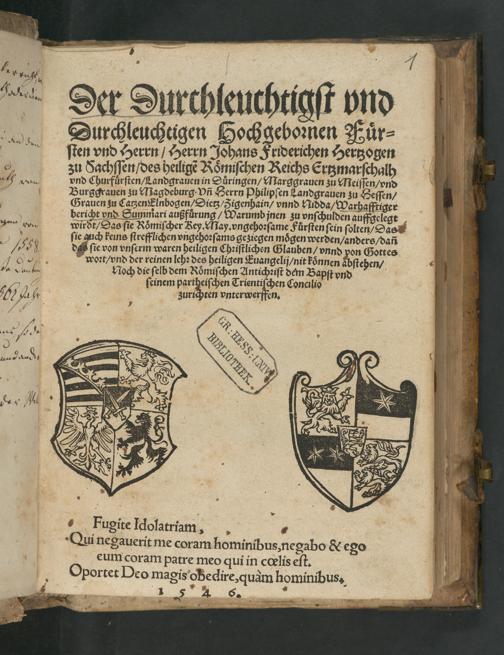 1
Der Durchleuchtigst vnd
Durchleuchtigen Hochgebornen Für-
sten vnd Herrn / Herrn Johans Friderichen Hertzogen
zu Sachssen / des heilige Römischen Reichs Ertzmarschalh
vnd Churfürsten / Landgrauen in Düringen / Marggrauen zu Meissen / vnd
Burggrauen zu Magdeburg. Vñ Herrn Philipsen Landgrauen zu Hessen /
Grauen zu CatzenElnbogen / Dietz / Zigenhain / vnnd Nidda / Warhafftiger
bericht vnd Summari außfürung / Warumb jnen zu vnschulden auffgelegt
wirdt / Das sie Römischer Key. May. vngehorsame Fürsten sein solten / Das
sie auch keins strefflichen vngehorsams gezigen mögen werden / anders / dañ
das sie von vnserm waren heiligen Christlichen Glauben / vnnd von Gottes
wort / vnd der reinen lehr des heiligen Euangelij / nit können abstehen /
Noch die selb dem Römischen Antichrist dem Bapst vnd
seinem partheischen Trientischen Concilio
zurichten vnterwerffen.
GR: HESS: UNIV:
BIBLIOTHEK.
Fugite Idolatriam,
Qui negauerit me coram hominibus, negabo & ego
eum coram patre meo qui in cœlis est.
Oportet Deo magis obedire, quàm hominibus.
1 5 4 6.